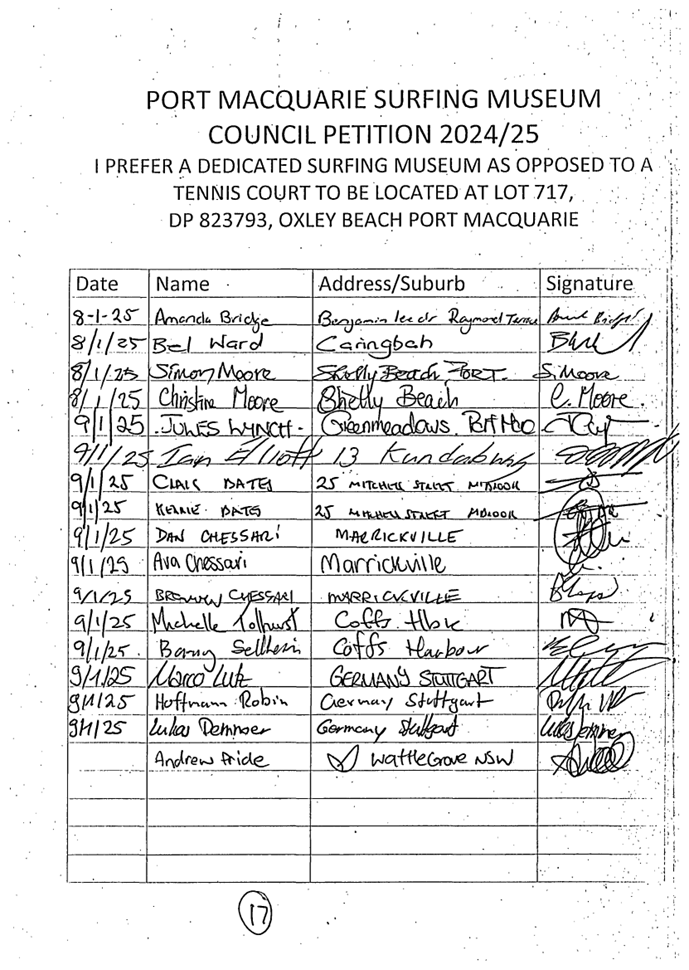 PORT MACQUARIE SURFING MUSEUM
COUNCIL PETITION 2024/25
I PREFER A DEDICATED SURFING MUSEUM AS OPPOSED TO A
TENNIS COURT TO BE LOCATED AT LOT 717,
DP 823793, OXLEY BEACH PORT MACQUARIE
Date Name Address/Suburb Signature
8-1-25 Amanda Bridge Benjamin lee dr Raymond Terrace
8/1/25 Bel Ward Caringbah
8/1/25 Simon Moore Shelly Beach PORT. S. Moore
8/1/25 Christine Moore Shelly Beach C. Moore.
9/1/25 JULES LYNCH - Greenmeadows
9/1/25 Ian Elliott 13
9/1/25 CLAIR BATES 25 MITCHELL STREET
9/1/25 BATES 25 MITCHELL STREET
9/1/25 DAN CHESSARI MARRICKVILLE
9/1/25 Ava Chessari Marrickville
9/1/25 BRONWYN CHESSARI MARRICKVILLE
9/1/25 Michelle Tolhurst Coffs Hbr
9/1/25. Barry Coffs Harbour
9/1/25 Marco Lutz GERMANY STUTTGART
9/1/25 Hoffmann Robin Germany Stuttgart
9/1/25 Lukas Germany Stuttgart
Andrew Pride Wattle Grove NSW
17